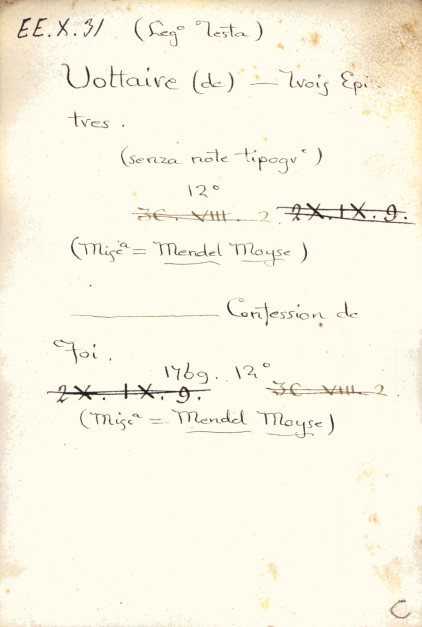 EE.X.31 (Leg° Testa)
Voltaire (de) — Trois Epi-
tres.
(senza note tipogr^e)
12°
3C. VIII. 2 2X.IX.9.
(Misc^a = Mendel Moyse)
——— Confession de
Foi.
1769. 12°
2X. IX. 9. 3C VIII 2.
(Misc^a = Mendel Moyse)
C